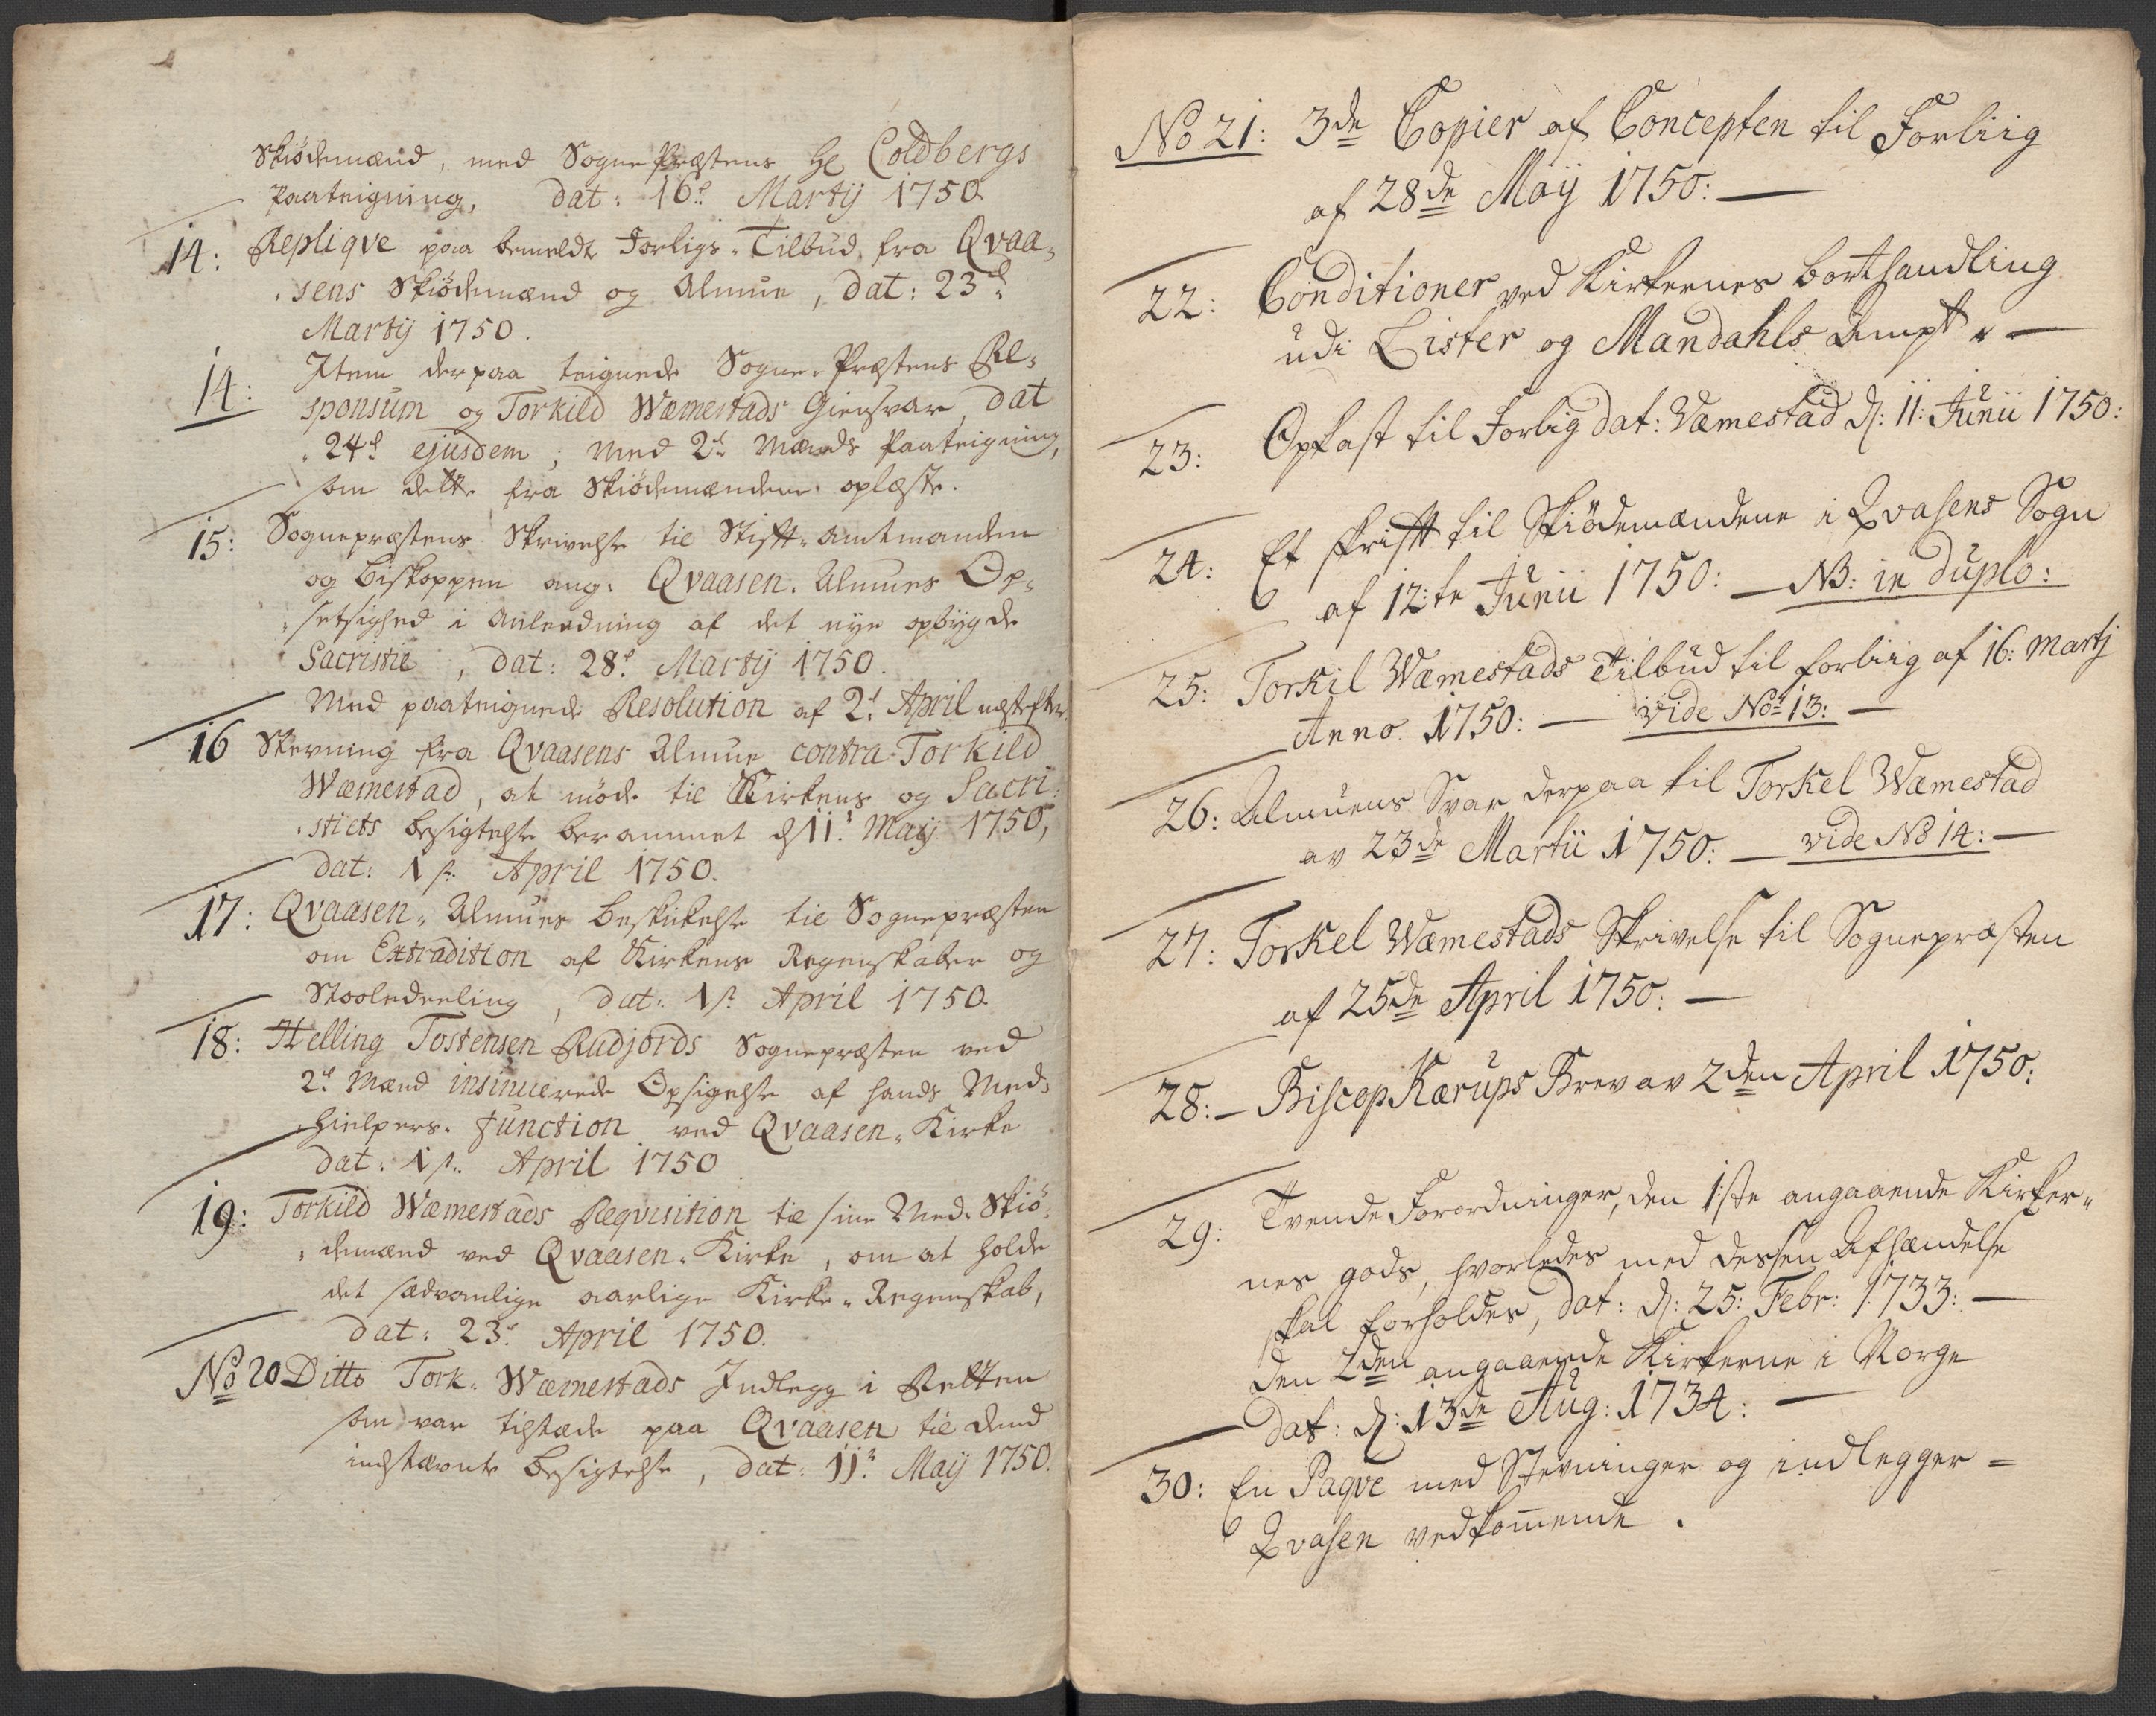 Skiødemænd, med Sogne Præstens Hr. Coldbergs
paateigning, dat: 16d Martij 1750
14: Replique paa bemeldte Forligs-Tilbud, fra Qvaa-
sens Skiødemænd og Almue, dat: 23d
Martij 1750.
14: Item derpaa teignede Sogne-Præstens Re-
sponsum og Torkild Wæmestads Giensvar, dat
24d ejusdem, med 2de Mænds Paateigning,
som dette fra Skiødemændene oplæste.
15: Sognepræstens Skrivelse til Stift-Amtmanden
og Biskoppen ang: Qvaasen-Almues Op-
setsighed i Anledning af det nye opbygde
Sacristie, dat: 28d Martij 1750.
Med paateignede Resolution af 2d April næstefter.
16 Stevning fra Qvaasens Almue contra Torkild
Wæmestad, at møde til Kirkens og Sacri-
stiets besigtelse berammet d 11d Maij 1750,
dat: 1st April 1750.
17: Qvaasen-Almues Beskikelse til Sognepræsten
om Extradition af Kirkens Regenskaber og
Stooledeeling, dat: 1st April 1750
18: Helling Tostensen Rudjords Sognepræsten ved
2de Mænd insinuerede Opsigelse af hands Med-
hielpers-function ved Qvaasen-Kirke
dat: 1st April 1750
19: Torkild Wæmestads Reqvisition til sine Med-Skiø-
demænd ved Qvaasen-Kirke, om at holde
det sædvanlige aarlige Kirke-Regenskab,
dat: 23d April 1750.
No 20 Ditto Tork. Wæmestads Indlegg i Retten
som var tilstæde paa Qvaasen til dend
indstævnte Besigtelse, dat: 11d Maij 1750.
No 21: 3de Copier af Concepten til Forliig
af 28de Maij 1750:—
22: Conditioner ved Kirkernes borthandling
udi Lister og Mandahls Ampt —
23: Opkast til Forlig dat: Væmestad d: 11: Junii 1750:
24: Et skrift til Skiödemændene i Qvasens Sogn
af 12:te Junii 1750: — NB: in duplo:
25: Torkil Wæmestads Tilbud til forliig af 16: Martj
Anno 1750: — vide No 13: —
26: Almuens Svar derpaa til Torkel Wæmestad
av 23de Martii 1750: — vide No 14: —
27: Torkel Wæmestads Skrivelse til Sognepræsten
af 25de April 1750: —
28: — Biscop Kærups Brev av 2den April 1750:
29: Tvende Forordninger, den 1ste angaaende Kirker-
nes gods, hvorledes med dessen Afhændelse
skal forholdes, dat: d: 25: Febr: 1733: —
den 2den angaaende Kirkerne i Norge
dat: d: 13de Aug: 1734: —
30: En Paqve med Stevninger og indlegger =
Qvasen vedkommende.